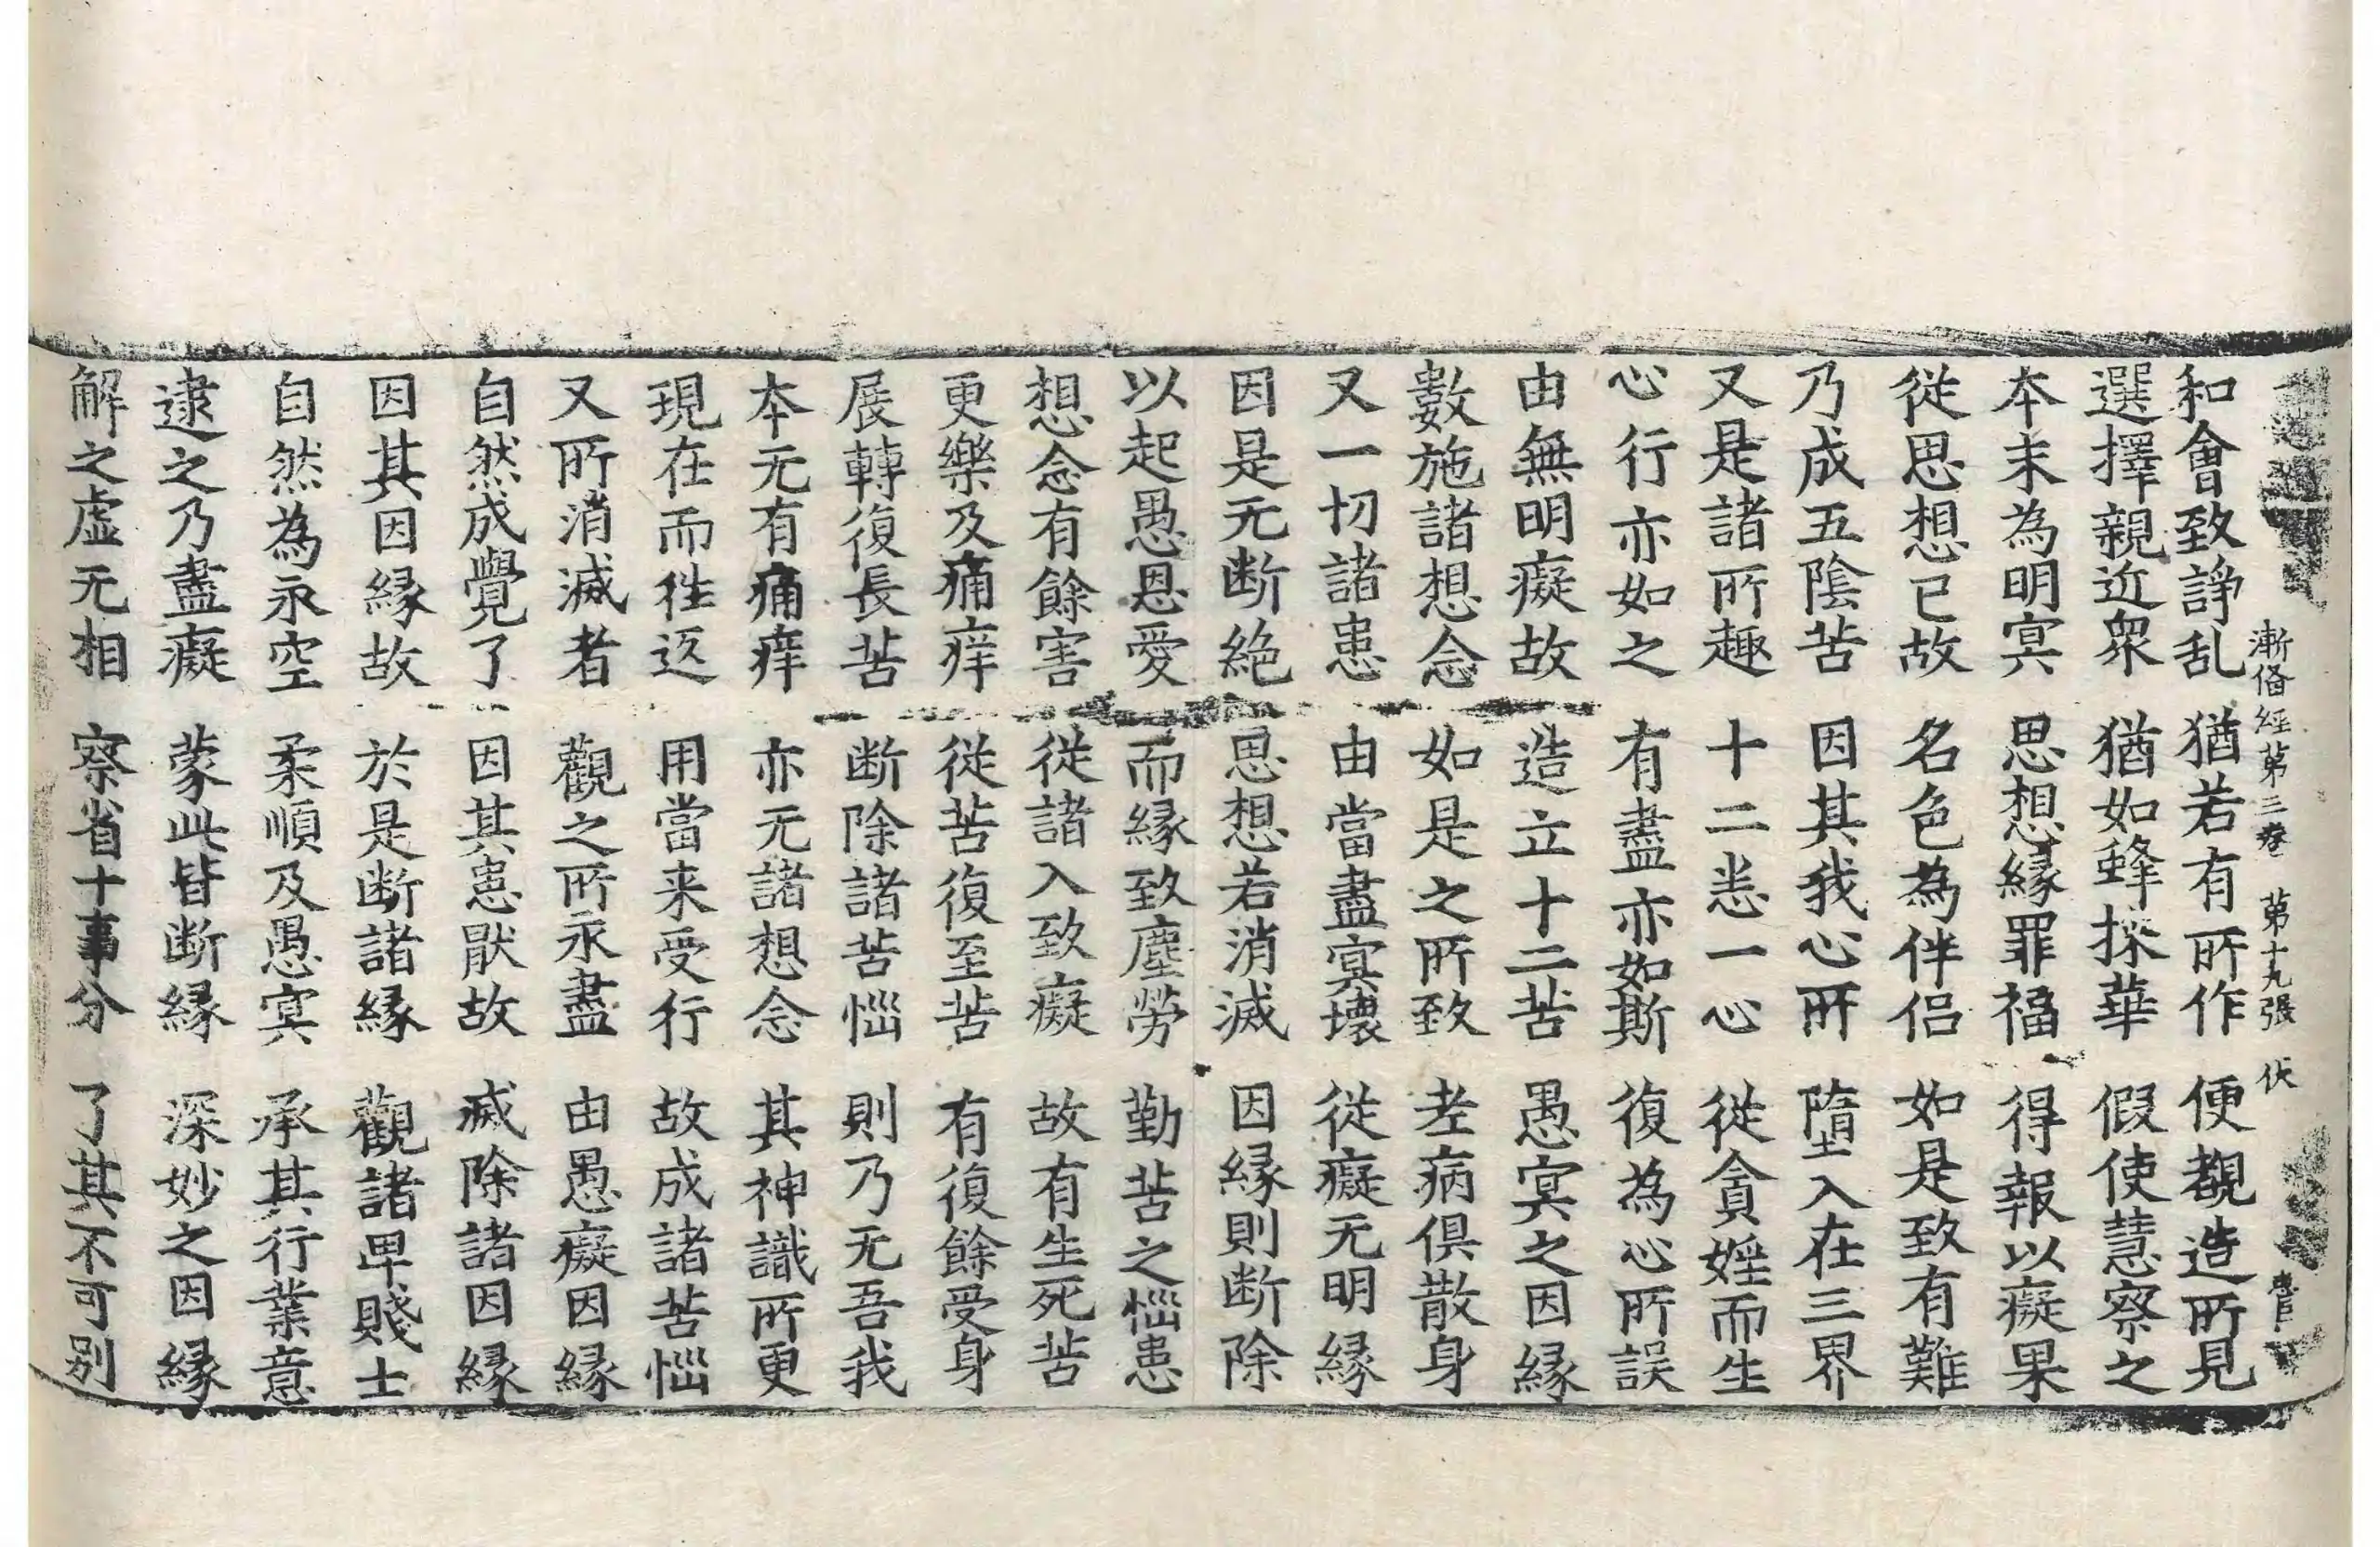 漸備經第三卷 第十九張 伏
和會致諍乱 猶若有所作 便覩造所見
選擇親近衆 猶如蜂採華 假使慧察之
本末為明冥 思想緣罪福 得報以癡果
從思想已故 名色為伴侣 如是致有難
乃成五陰苦 因其我心所 墮入在三界
又是諸所趣 十二恙一心 從貪婬而生
心行亦如之 有盡亦如斯 復為心所誤
由無明癡故 造立十二苦 愚冥之因緣
數施諸想念 如是之所致 老病俱散身
又一切諸患 由當盡冥壞 從癡无明緣
因是无断絶 思想若消滅 因緣則断除
以起愚恩愛 而緣致塵勞 勤苦之惱患
想念有餘害 從諸入致癡 故有生死苦
更樂及痛痒 從苦復至苦 有復餘受身
展轉復長苦 断除諸苦惱 則乃无吾我
本无有痛痒 亦无諸想念 其神識所更
現在而徃返 用當来受行 故成諸苦惱
又所消滅者 觀之所永盡 由愚癡因緣
自然成覺了 因其患猒故 滅除諸因緣
因其因緣故 於是断諸緣 觀諸卑賤士
自然為永空 柔順及愚冥 承其行業意
逮之乃盡癡 蒙此皆断緣 深妙之因緣
解之虚无相 察省十事分 了其不可别